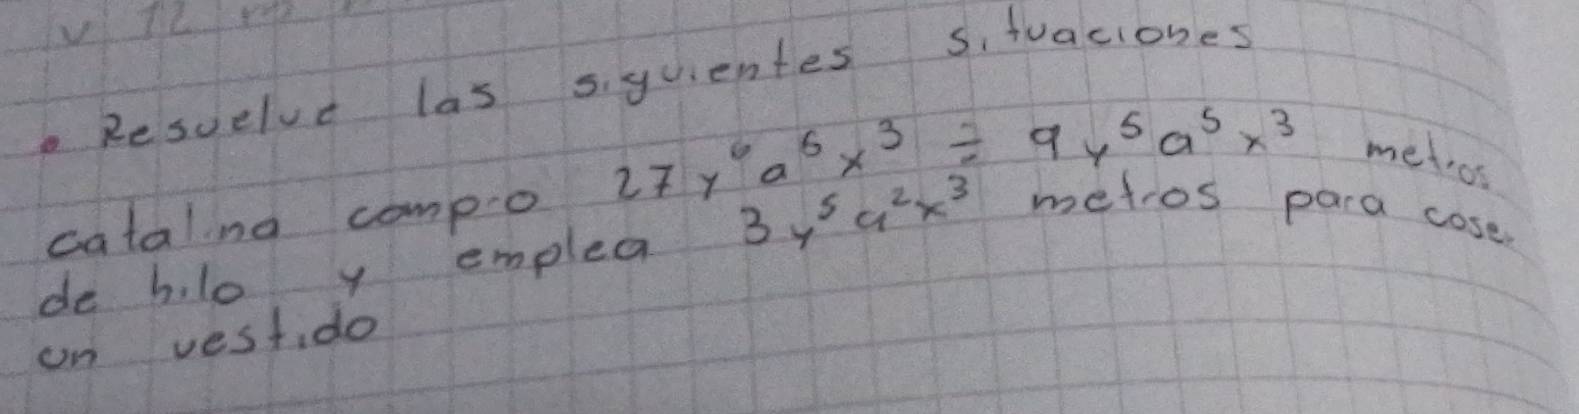 • Resuelve las siguientes situaciones
catalina compro 27y⁶a⁵x³ ÷ 9y⁵a⁵x³ metros
de hilo y emplea 3y⁵a²x³ metros para coser
un vestido